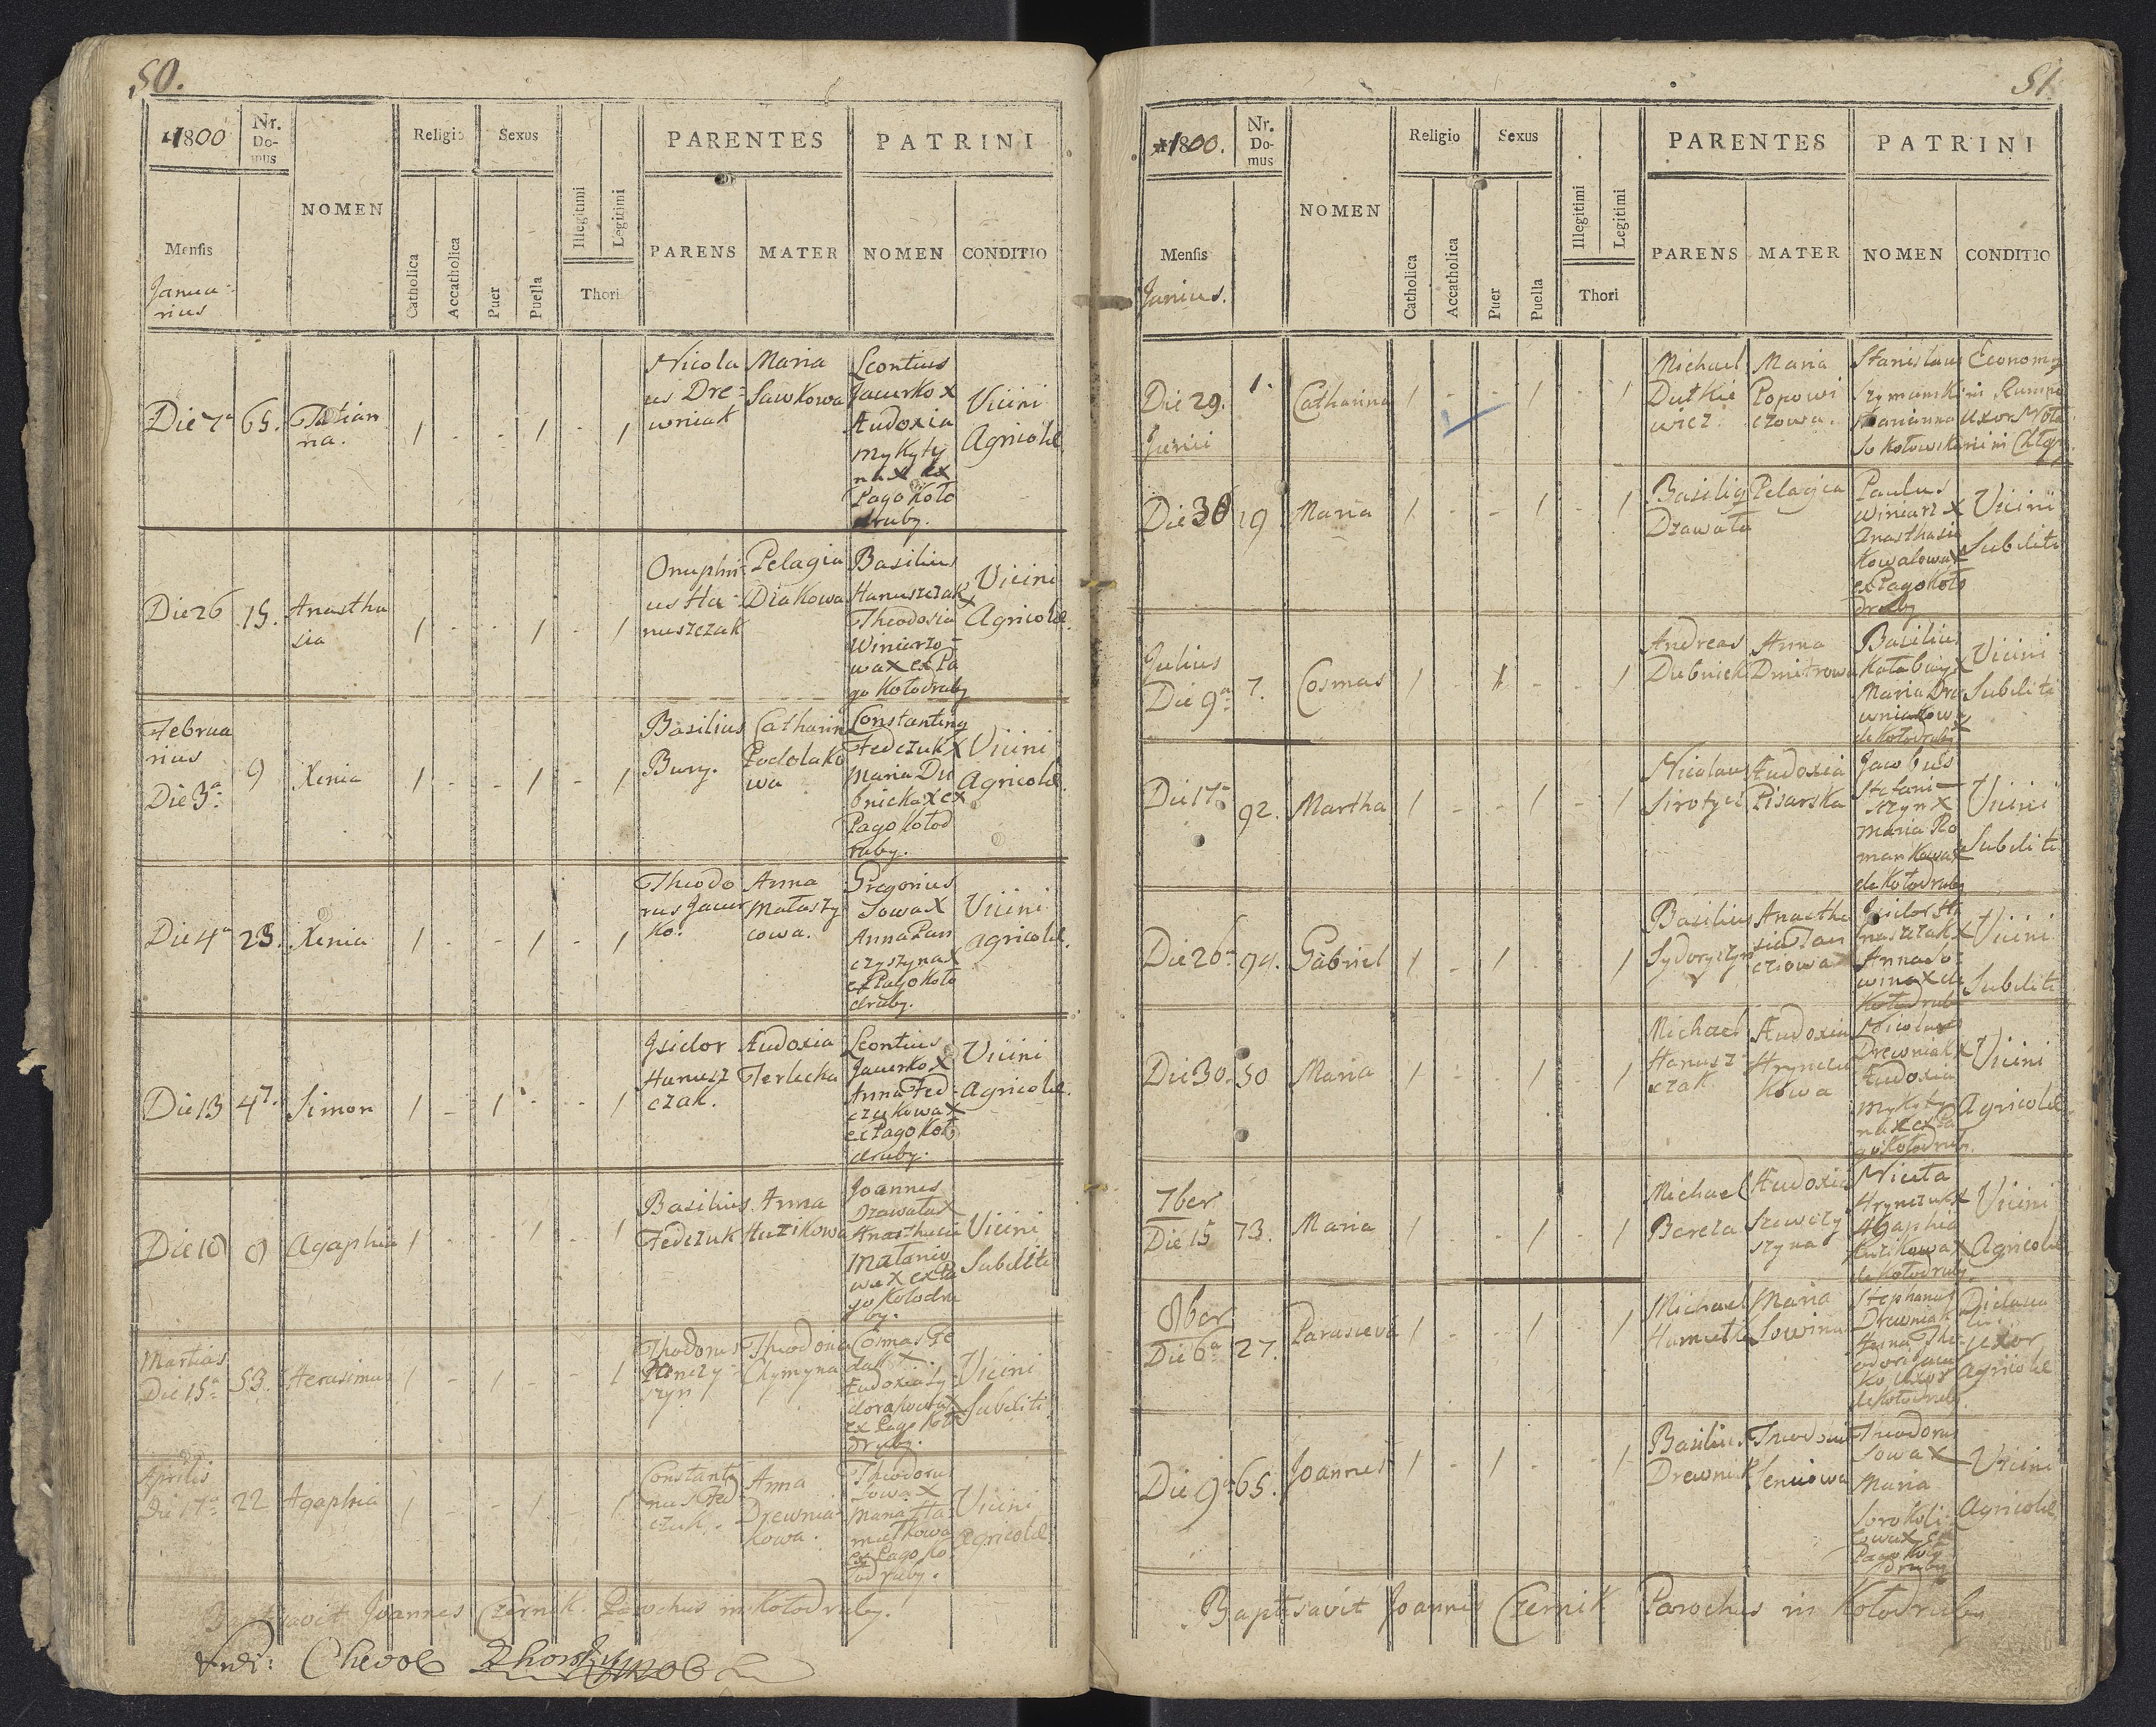 50.
1800
Nr. Domus
NOMEN
Religio
Sexus
Illegitimi
Legitimi
PARENTES
PATRINI
Mensis
Catholica
Accatholica
Puer
Puella
Thori
PARENS
MATER
NOMEN
CONDITIO
Janua-
rius
Die 7a
65.
Tatian
na.
1 - - 1 - 1
Nicola
us Dre-
wniak
Maria
Sawkowa
Leontius
Jaeurko x
Audoxia
Mykyty
na x ex
Pago Koło
druby.
Vicini
Agricolæ
Die 26
15.
Anastha
sia
1 - - 1 - 1
Onuphri-
us Ha-
nuszczak
Pelagia
Diakowa
Basilius
Hanuszczak x
Theodosia
Winiarzo-
wa x ex Pa
go Kołodruby
Vicini
Agricolæ.
Februa
rius
Die 3a
9
Xenia
1 - - 1 - 1
Basilius
Bury.
Catharin
Podolako
wa
Constanting
Fedczuk x
Maria Du
bnicka x ex
Pago Kołod
ruby.
Vicini
Agricolæ.
Die 4a
23.
Xenia
1 - - 1 - 1
Theodo
rus Jaeur
ko.
Anna
Małaszy
cowa.
Gregorius
Sowa x
Anna Pan
czyszyna x
ex Pago Koło
druby.
Vicini
Agricolæ.
Die 13
47.
Simon
1 - 1 - - 1
Isidor
Hanusz
czak.
Audoxia
Terlecka
Leontius
Jaeurko x
Anna Fed-
czukowa x
ex Pago Koło
druby.
Vicini
Agricolæ.
Die 18
8
Agaphia
1 - - 1 - 1
Basilius
Fedczuk
Anna
Huzikowa
Joannes
Dzawała x
wa x ex Pa
go Kołodru
by.
Vicini
Subditi
Martius
Die 15a
53.
Herasimus
1 - 1 - - 1
Thodorus
Theodosia
Chymyna
Cosmas Fe
dak x
Audoxia Sy-
dorakowa x
ex Pago Koło
druby.
Vicini
Subditi
Aprilis
Die 17a
22
Agaphia
1 - - 1 - 1
Constanti
nus Fed
czuk.
Anna
Drewnia-
kowa.
Theodorus
Sowa x
Maria Ha
mułkowa
ex Pago Ko
łodruby.
Vicini
Agricolæ.
Baptisavit Joannes Czernik. Parochus in Kołodruby.
Vidi:
51.
1800.
Nr. Domus
NOMEN
Religio
Sexus
Illegitimi
Legitimi
PARENTES
PATRINI
Mensis
Catholica
Accatholica
Puer
Puella
Thori
PARENS
MATER
NOMEN
CONDITIO
Junius.
Die 29.
Junii
1.
Catharina
1 - - 1 - 1
Michael
Dutkie
wicz
Maria
Popowi
czowa.
Stanislaus
Szymanski
Marianna
Sokołowska
Economg
Uxor
Die 30
19
Maria
1 - - 1 - 1
Basilig
Dzawała
Pelagia
Paulus
Winiarz x
Anasthasia
Kowalowa x
ex Pago Koło
druby
Vicini
Subditi
Julius
Die 9a
7.
Cosmas
1 - 1 - - 1
Andreas
Dubnick
Anna
Dmitrowa
Basilius
Maria Dre
wniakowa
de Kołodruby
Vicini
Subditi
Die 17a
92.
Martha
1 - - 1 - 1
Nicolaus
Sirotyci
Audoxia
Pisarska
Jacobus
Stefani-
szyn x
Maria Ro
mankowa x
de Kołodruby
Vicini
Subditi
Die 26a
94.
Gabriel
1 - 1 - - 1
Basilius
Sydoryszyn
Anastha
sia Pan
cziowa
Isidor Ha
nuszczak x
Anna So
wina x de
Kołodrub
Vicini
Subditi
Die 30.
50
Maria
1 - - 1 - 1
Michael
Hanusz-
czak
Audoxia
Hrynczu
kowa
Nicolaus
Drewniak x
Audoxia
Mykyty
na x ex Pa
go Kołodrub.
Vicini
Agricolæ.
7ber
Die 15
73.
Maria
1 - - 1 - 1
Michael
Bereza
Audoxia
Szewczy
szyna
Niceta
Hrynczuk x
Agaphia
Huzikowa x
de Kołodruby.
Vicini
Agricolæ
8ber
Die 6a
27.
Parasceva
1 - - 1 - 1
Michael
Hamułka
Maria
Sowina
Stephanus
Drewniak
uxor
de Kołodrub.
uxor
Agricolæ
Die 9a
65.
Joannes
1 - 1 - - 1
Basilius
Drewniak
Theodosia
Seniowa
Theodorus
Sowa x
Maria
Sorokoli-
towa x ex
Pago Koło
druby
Vicini
Agricolæ
Baptisavit Joannes Czernik Parochus in Kołodruby